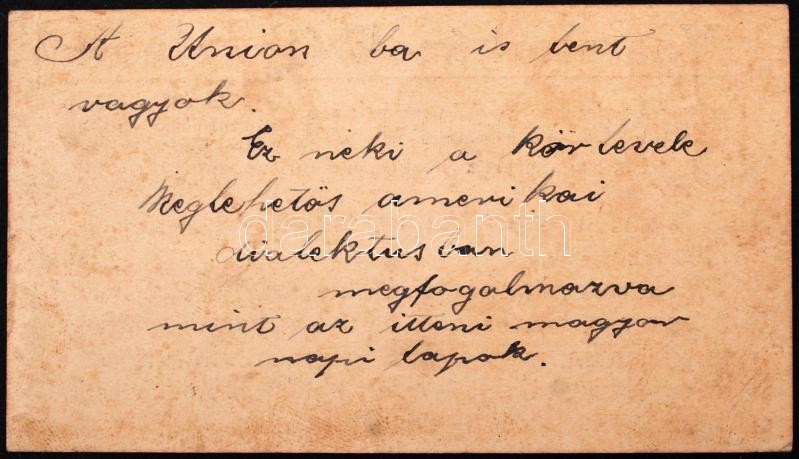 A Union ba is bent
vagyok.
Ez neki a körlevele
Meglehetős amerikai
darabanth
dialektusvan
megfogalmazva
mint az itteni magyar
napi lapok.